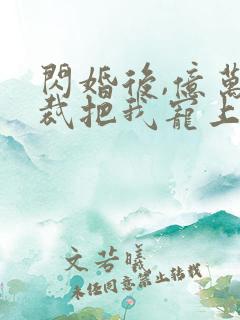 閃婚後,億萬
裁把我寵上
文若曦
未經同意禁止轉載